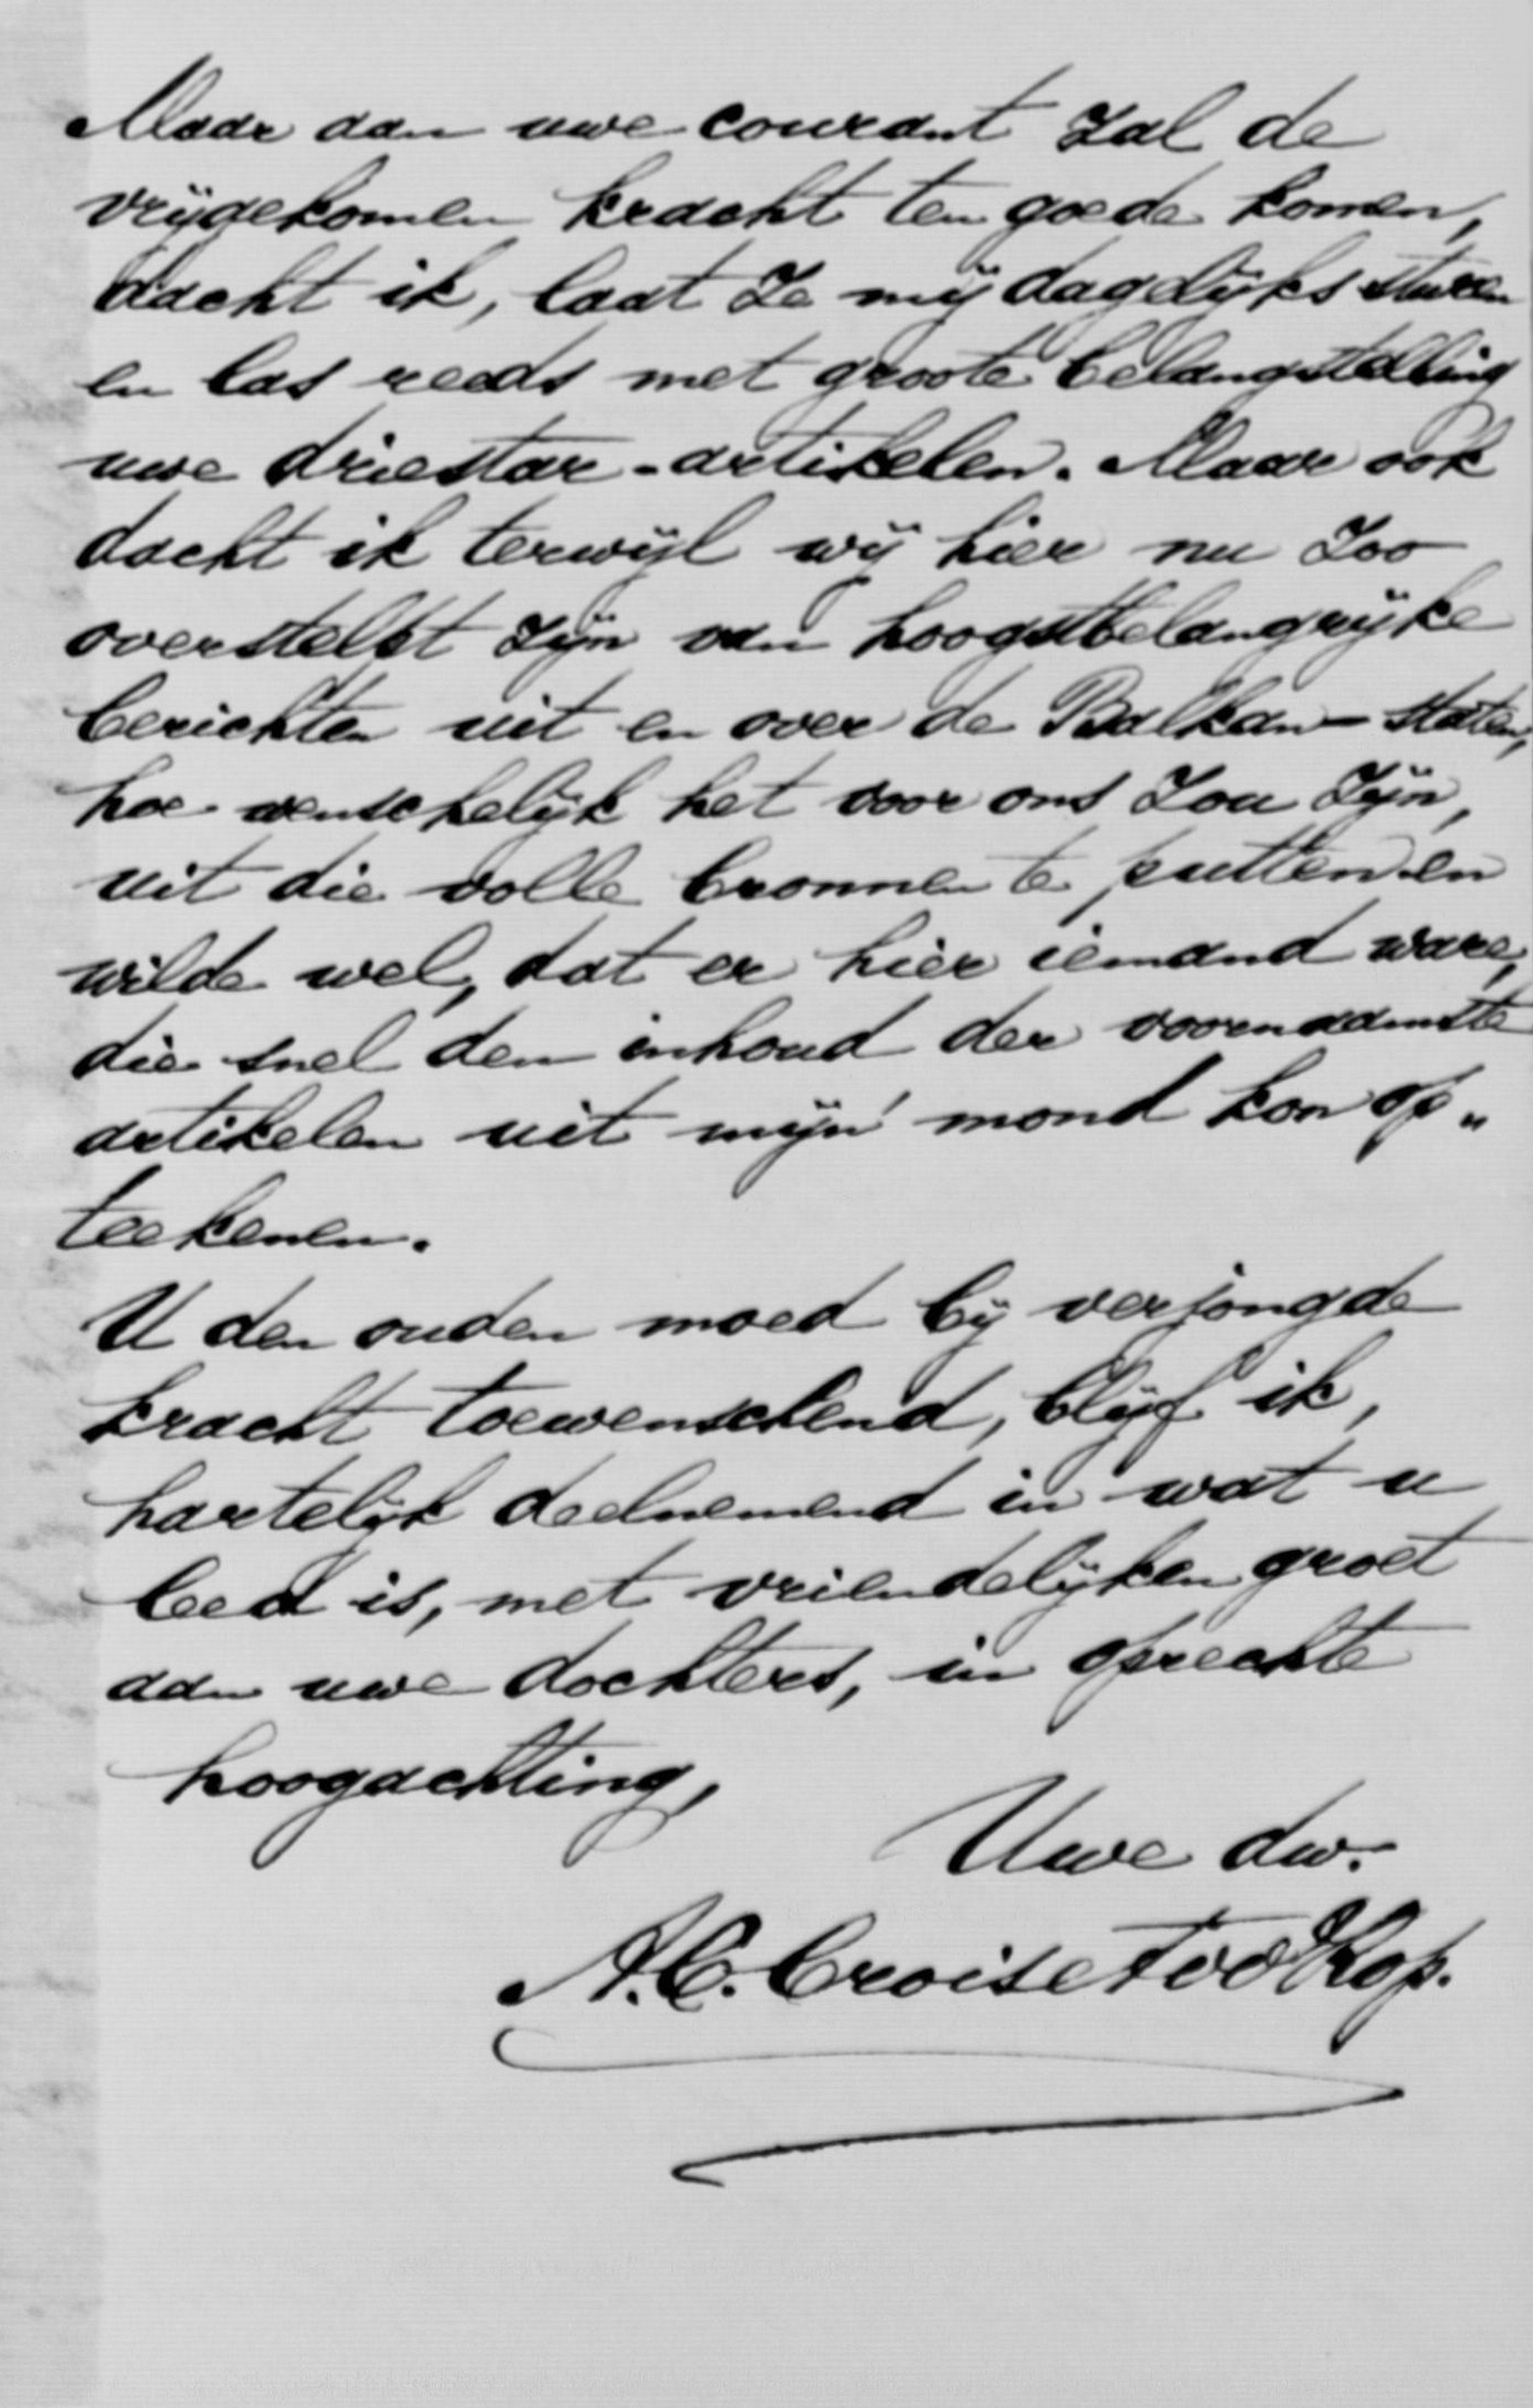 Maar aan uwe courant zal de
vrijgekomen kracht ten goede komen,
dacht ik, laat ze mij dagelijks sturen
en las reeds met groote belangstelling
uwe driestar-artikelen. Maar ook
dacht ik terwijl wij hier nu zoo
overstelpt zijn van hoogstbelangrijke
berichten uit en over de Balkan-staten,
hoe wenschelijk het voor ons zou zijn,
uit die volle bronnen te putten en
wilde wel, dat er hier iemand ware,
die snel den inhoud der voornaamste
artikelen uit mijn' mond kon op„
teekenen.
U den ouden moed bij verjongde
kracht toewenschend, blijf ik,
hartelijk deelnemend in wat u
leed is, met vriendelijken groet
aan uwe dochters, in oprechte
hoogachting,
Uwe dw.
A.C. Croiset